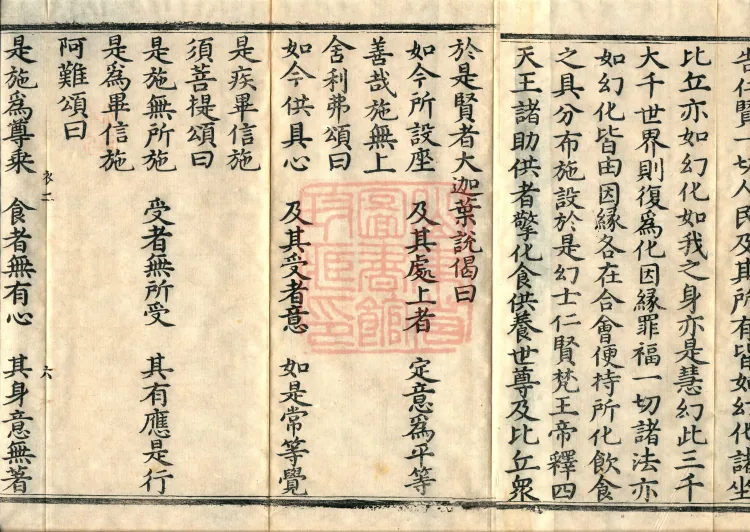 告仁賢一切人民及其所有皆如幻化諸坐
比丘亦如幻化如我之身亦是慧幻此三千
大千世界則復爲化因縁罪福一切諸法亦
如幻化皆由因縁各在合會便持所化飲食
之具分布施設於是幻士仁賢梵王帝釋四
天王諸助供者擎化食供養世尊及比丘衆
於是賢者大迦葉說偈曰
如今所設座 及其處上者 定意爲平等
善哉施無上
舍利弗頌曰
如今供具心 及其受者意 如是常等覺
是疾畢信施
須菩提頌曰
是施無所施 受者無所受 其有應是行
是爲畢信施
阿難頌曰
衣二 六
是施爲尊乘 食者無有心 其身意無著